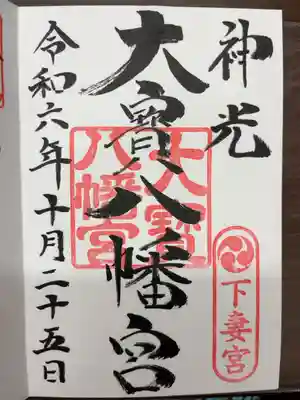 神光
大寳八幡宮
大寳
八幡宮
下妻宮
令和六年十月二十五日